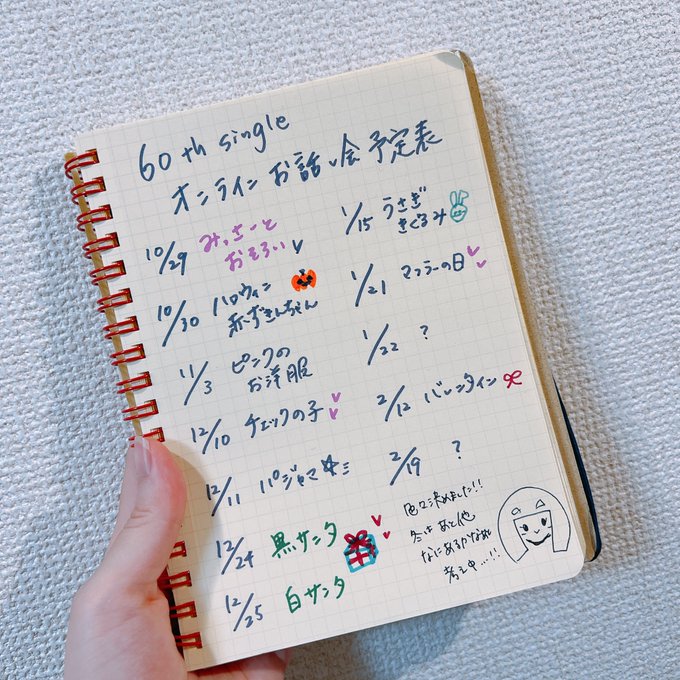 60th single
オンラインお話し会 予定表
10/29 みーさーと
おそろい
10/30 ハロウィン
赤ずきんちゃん
11/3 ピンクの
お洋服
12/10 チェックの子
12/11 パジャマ
12/24 黒サンタ
12/25 白サンタ
1/15 うさぎ
きぐるみ
1/21 マフラーの日
1/22 ?
2/12 バレンタイン
2/19 ?
色々決めました!!
冬はあと他
なにあるかなぁ
考え中…!!